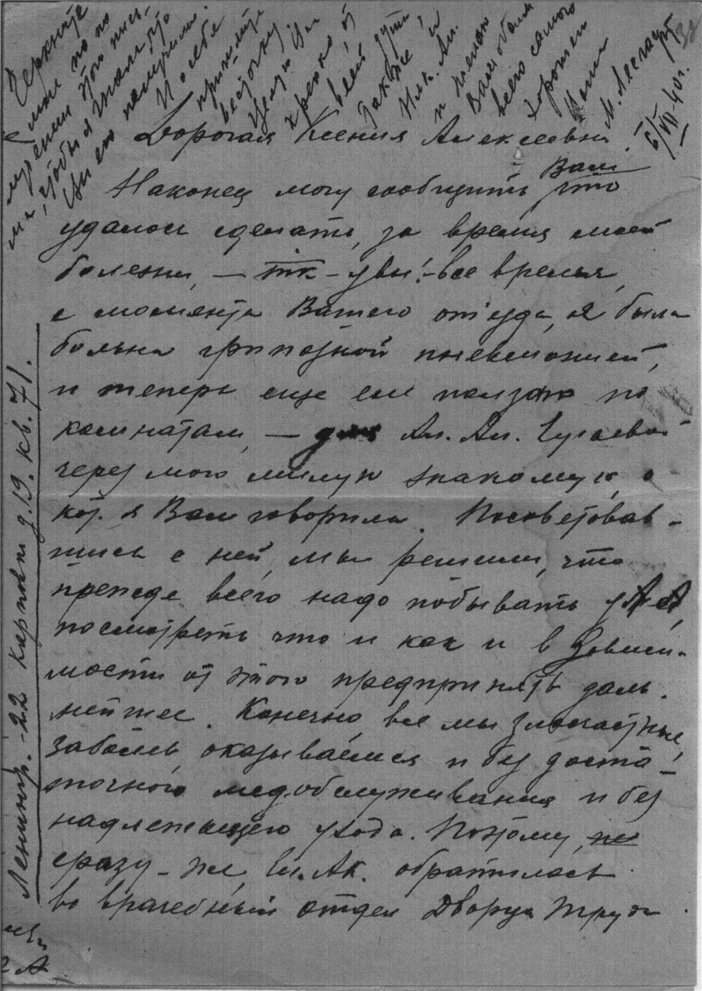 Черкните
мне по по-
лучении этого пись-
ма, чтобы я знала, что
Вы его получили.
Целую Вас
крепко от
всей души
также и
и желаю
Вам обоим
всего самого
хорошего
Ваша
6/VII-40 г.
Дорогая Ксения Алексеевна.
Наконец могу сообщить Вам что
удалось сделать, за время моей
болезни, – тк – увы! – все время,
с момента Вашего от'езда, я была
больна гриппозной пневмонией,
и теперь еще еле ползаю по
комнатам, – для Ал. Ал.
через мою милую знакомую, о
кот. я Вам говорила. Посоветовав-
шись с ней, мы решили, что
прежде всего надо побывать у А А,
посмотреть что и как и в зависи-
мости от этого предпринять даль-
нейшее. Конечно все мы злосчастные,
заболев, оказываемся и без доста-
точного медобслуживания и без
надлежащего ухода. Потому, не
сразу-же, обратилась
во врачебный отдел Дворца Труда
Ленингр. - 22 Карповки д. 19. кв. 71.